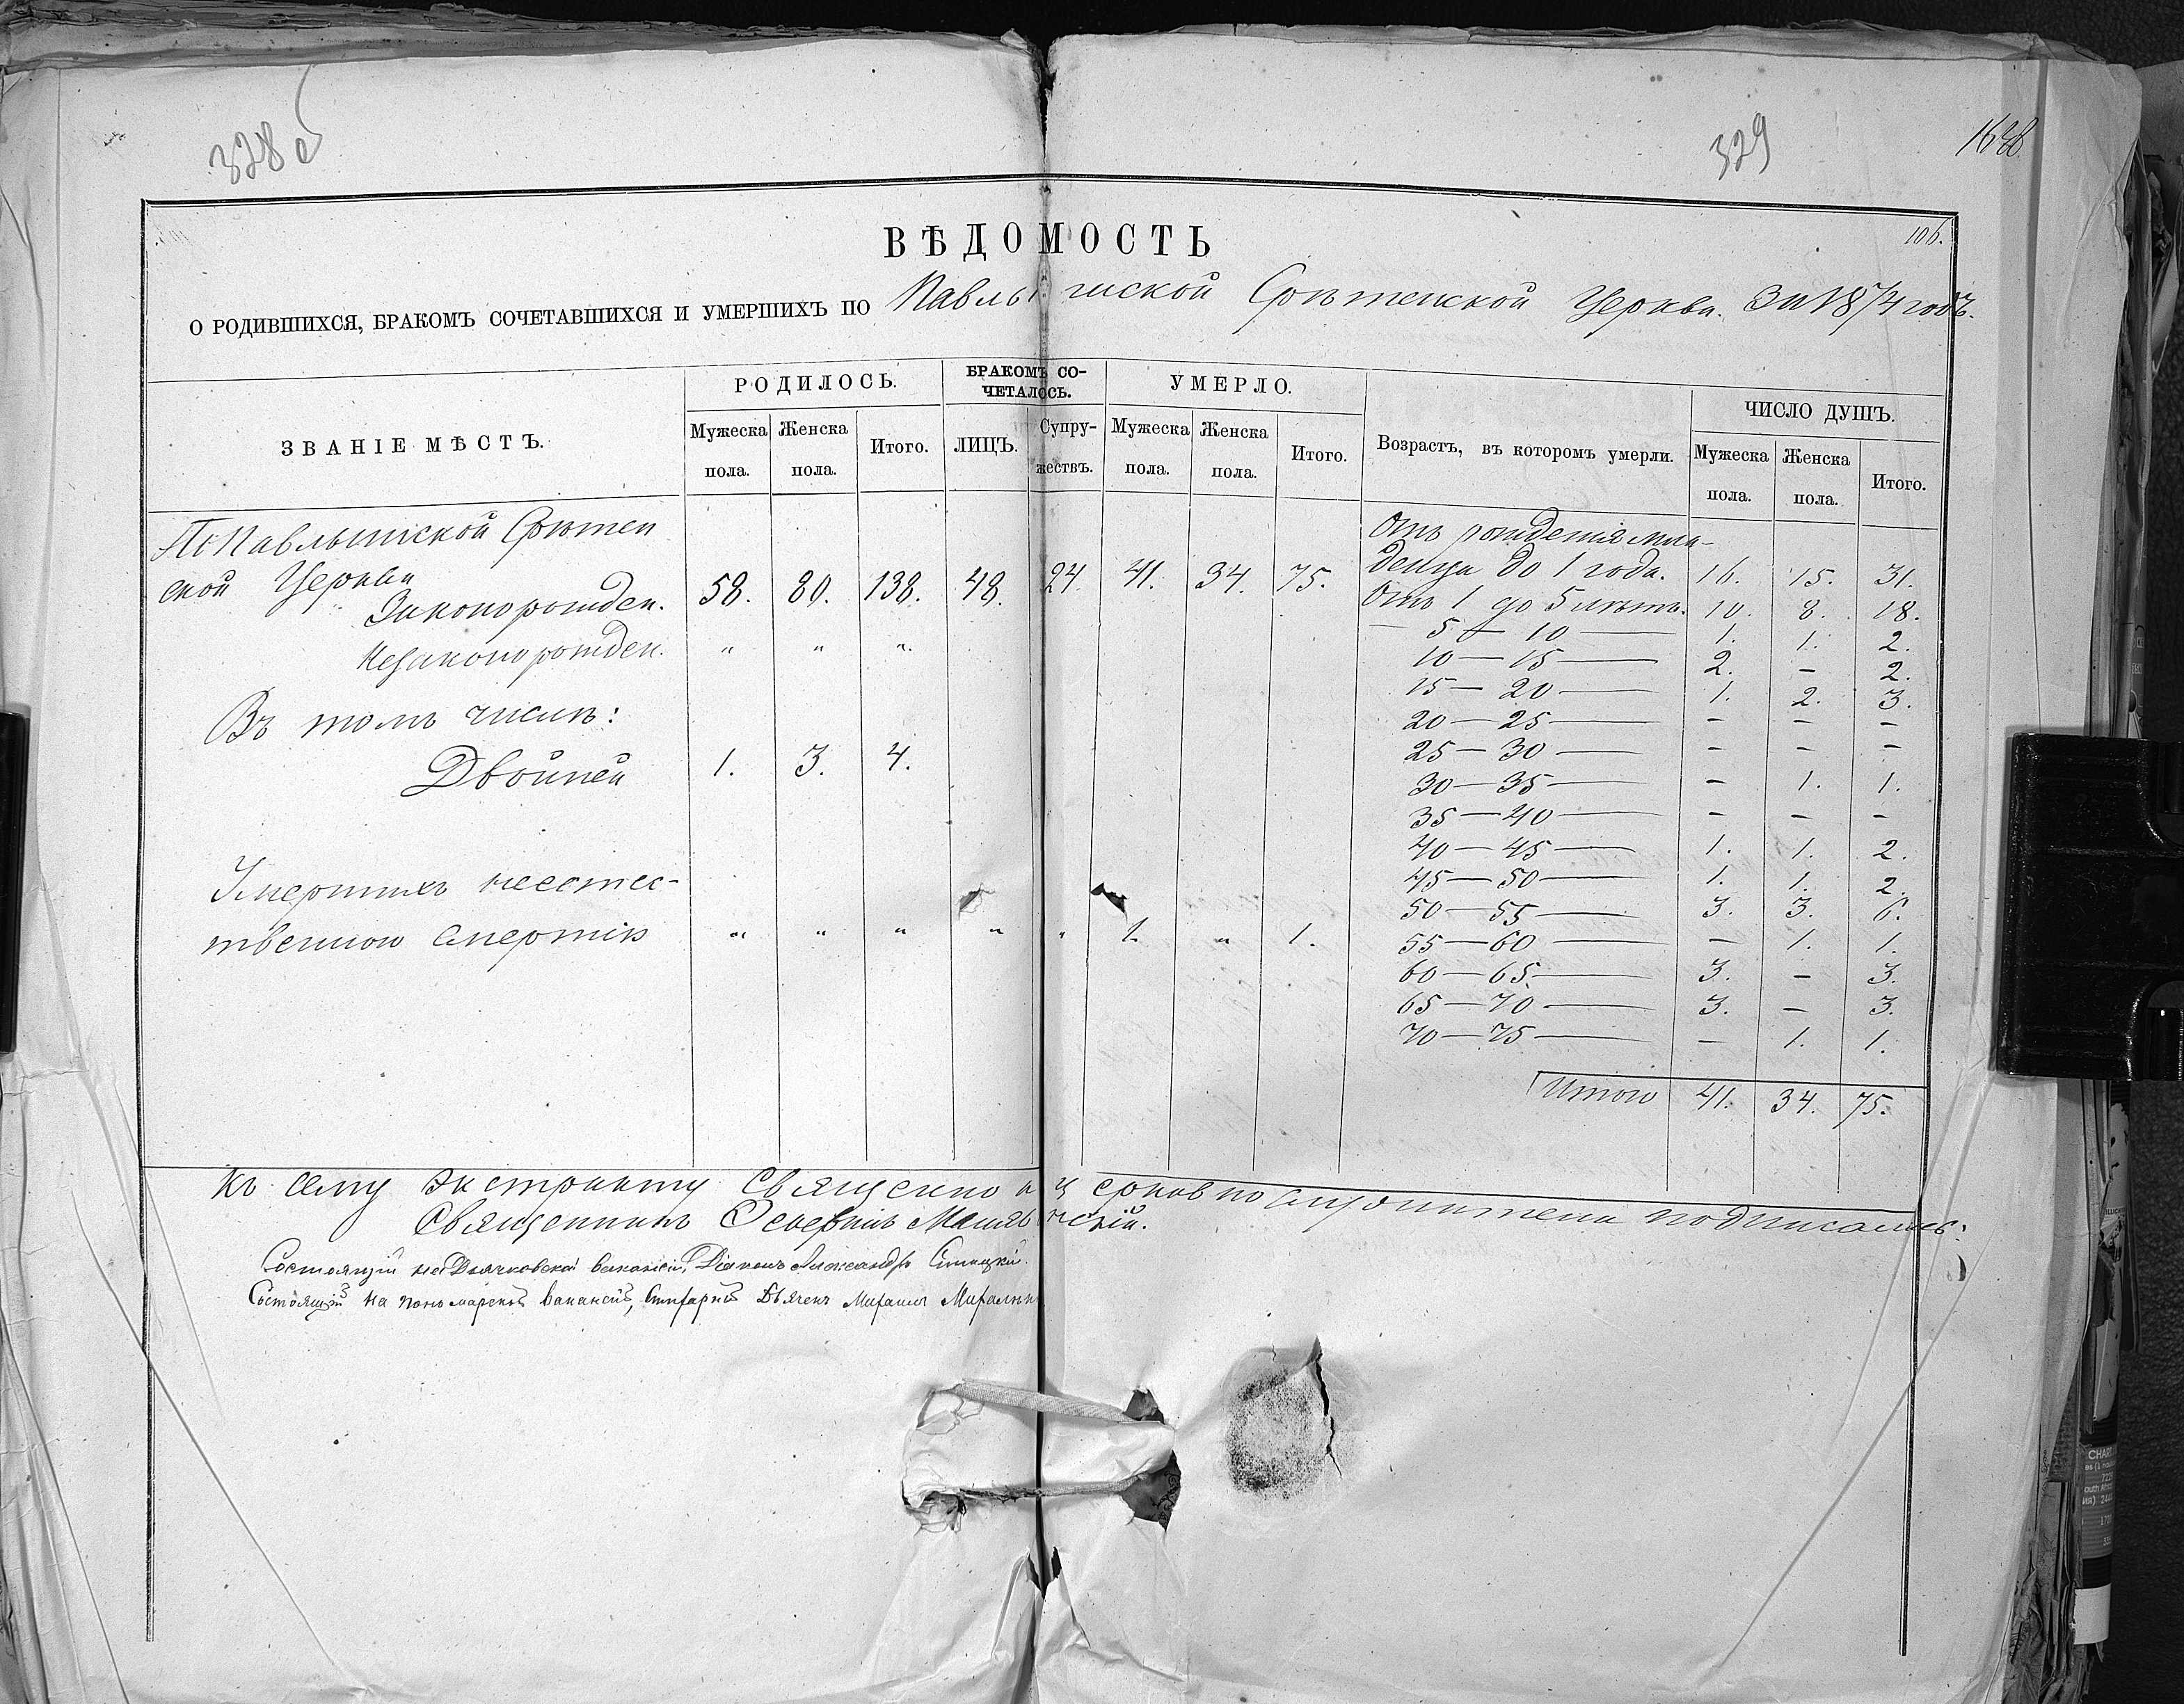 328 об
329
106.
ВѢДОМОСТЬ
О РОДИВШИХСЯ, БРАКОМЪ СОЧЕТАВШИХСЯ И УМЕРШИХЪ ПО Павлышской Срѣтенской Церкви. За 1874 годъ.
ЗВАНІЕ МѢСТЪ. РОДИЛОСЬ. БРАКОМЪ СО-ЧЕТАЛОСЬ. УМЕРЛО. Возрастъ, въ которомъ умерли. ЧИСЛО ДУШЪ.
Мужеска пола. Женска пола. Итого. ЛИЦЪ. Супру-жествъ. Мужеска пола. Женска пола. Итого. Мужеска пола. Женска пола. Итого.
По Павлышской Срѣтен
ской Церкви
Законорожден. 58. 80. 138. 48. 24. 41. 34. 75.
Незаконорожден. " " "
Въ томъ числѣ:
Двойней 1. 3. 4.
Умершихъ неестес-
твенною смертію " " " " " 1. " 1.
Отъ рожденія мла-
денца до 1 года. 16. 15. 31.
Отъ 1 до 5 лѣтъ. 10. 8. 18.
— 5 — 10 — 1. 1. 2.
10 — 15 — 2. — 2.
15 — 20 — 1. 2. 3.
20 — 25 — — — —
25 — 30 — — — —
30 — 35 — — 1. 1.
35 — 40 — — — —
40 — 45 — 1. 1. 2.
45 — 50 — 1. 1. 2.
50 — 55 — 3. 3. 6.
55 — 60 — — 1. 1.
60 — 65 — 3. — 3.
65 — 70 — 3. — 3.
70 — 75 — — 1. 1.
Итого 41. 34. 75.
Къ сему экстракту Священно и церковно служители подписались:
Священникъ
Состоящій на Дьячковской вакансіи, Діаконъ Александръ
Состоящій на пономарской вакансіи, Дьячекъ Михаилъ